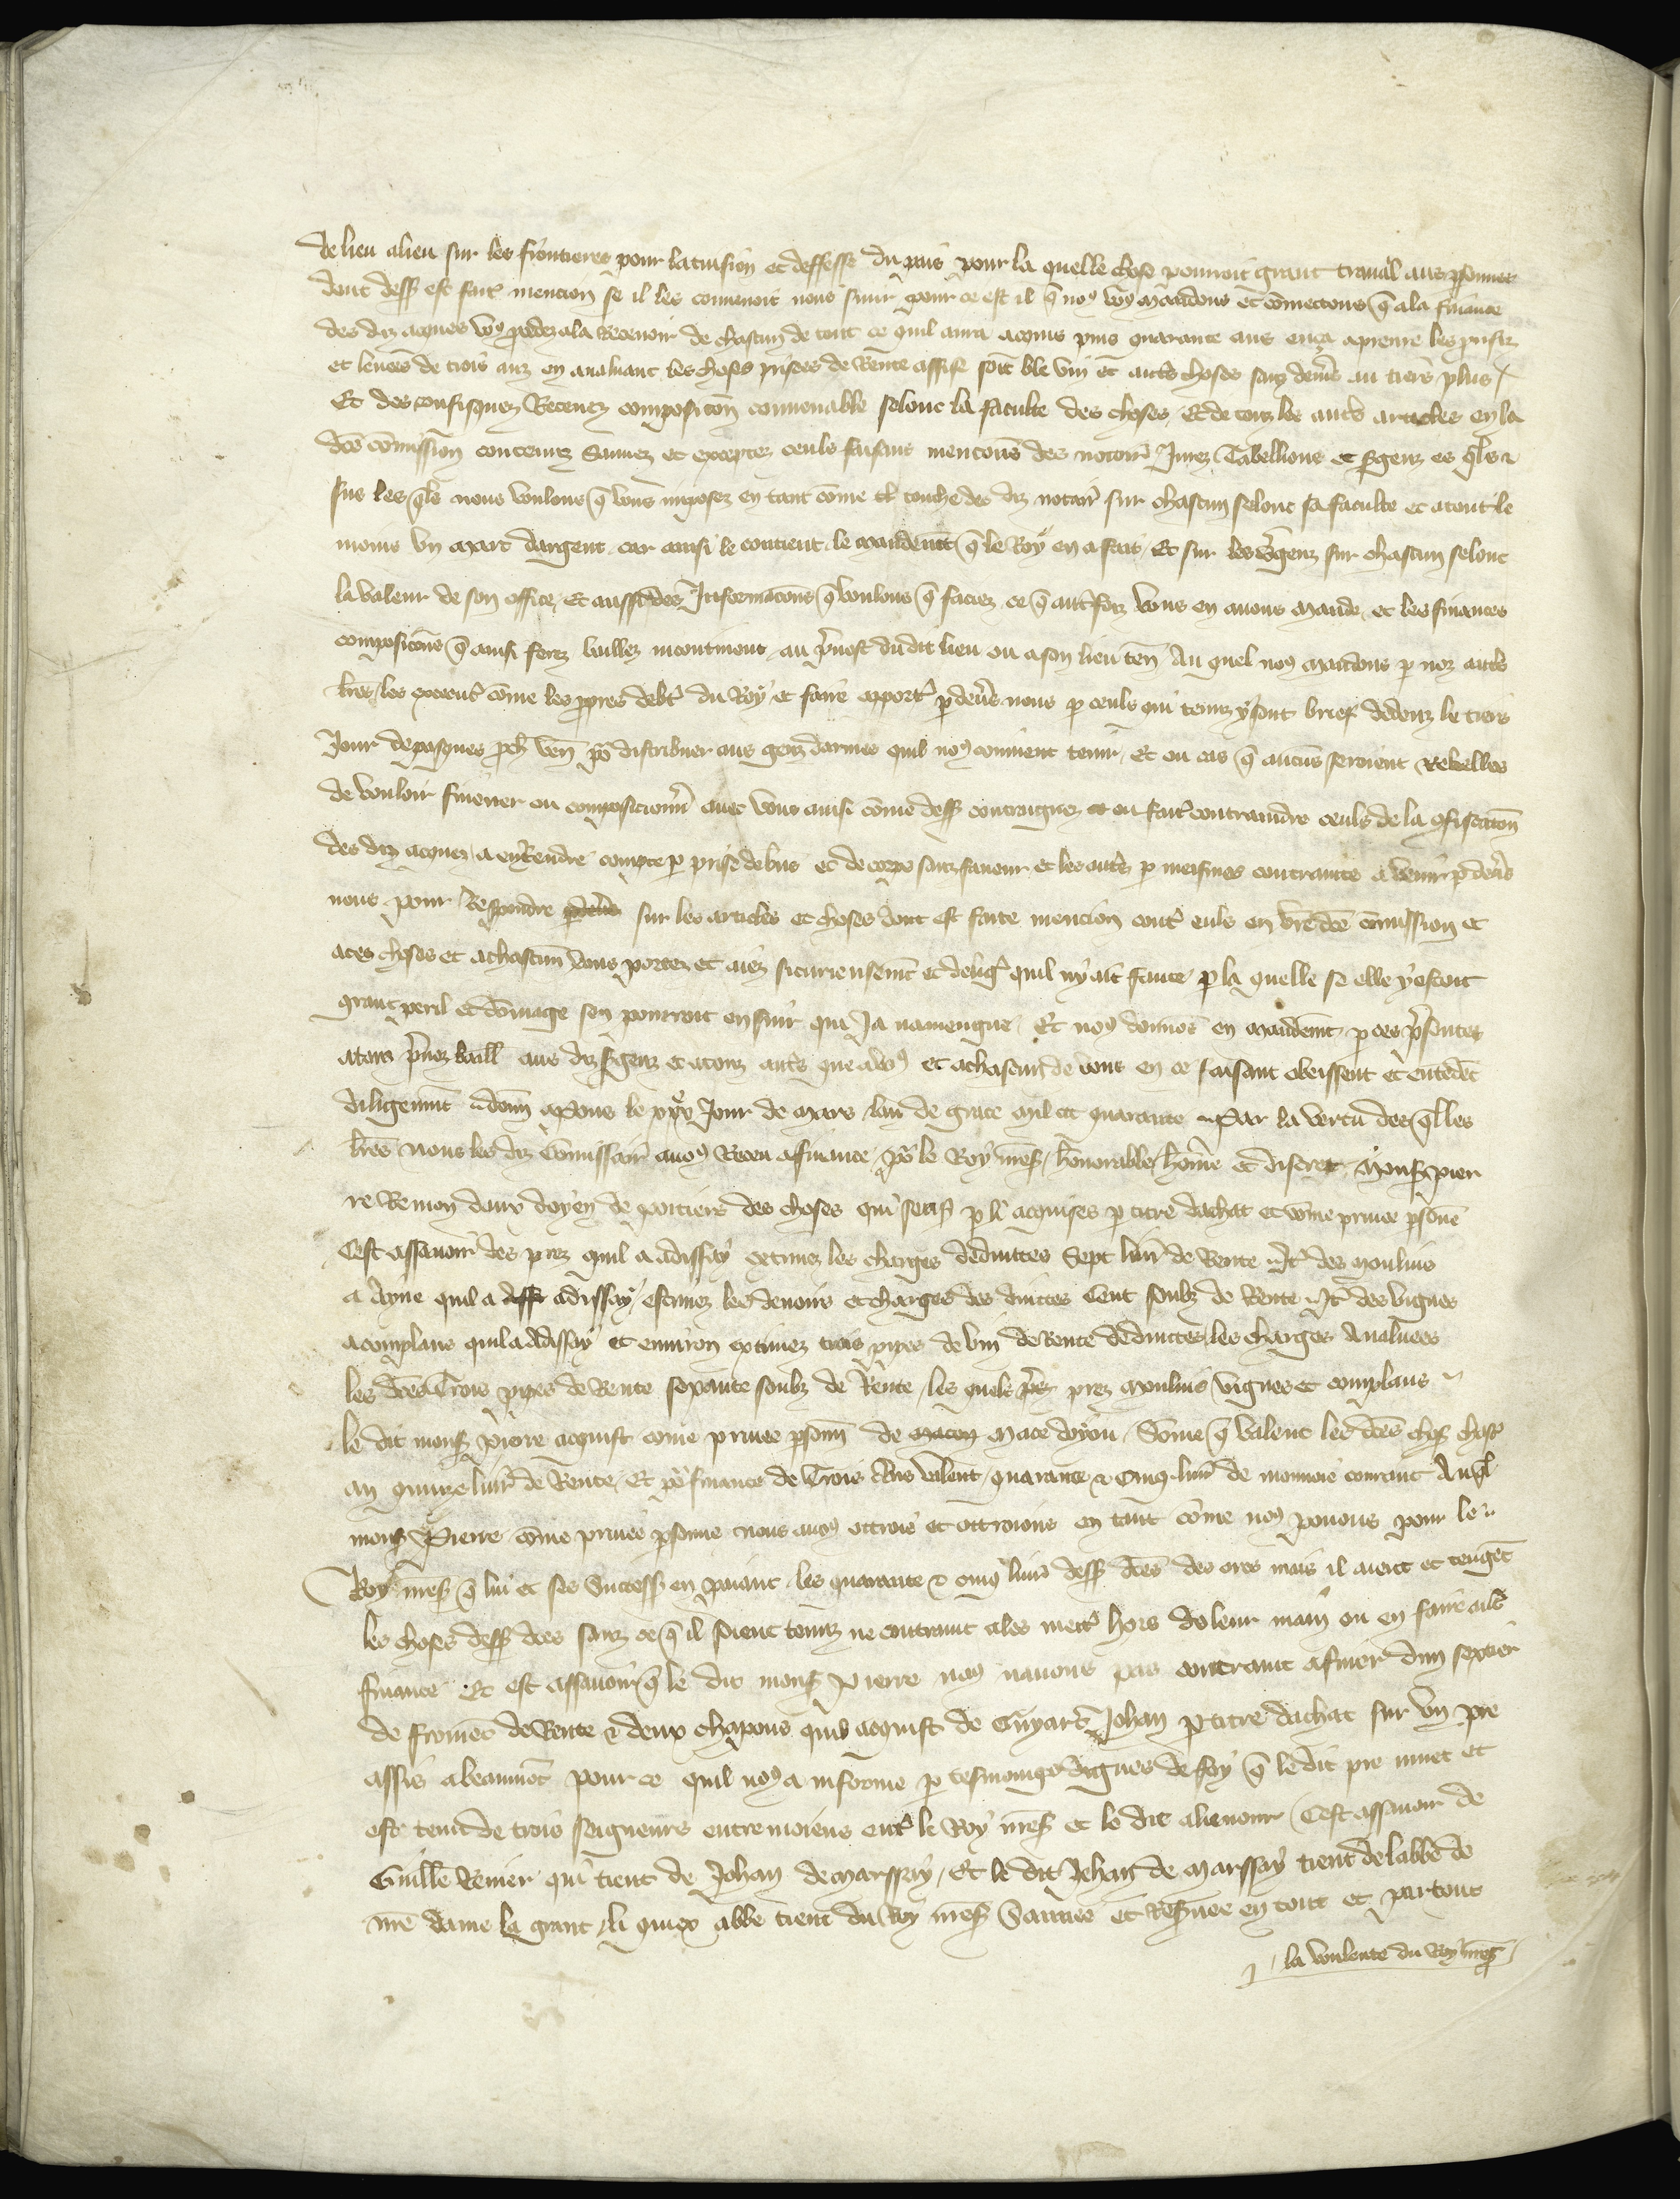 de lieu alieu sur les frontieres pour la tuision et deffesse du pais pour la quelle chose pourroit grant travail aus psonnes
dont dess est faite mencion se il les convenoit nous suir pour ce est il q̄ noꝯ voꝯ mandons et cōmectons q̄ a la finance
des diz acques voꝯ pcedez a la Recevoir de chascun de tout ce quil aura acquis puis quarante ans enca aprenre les prisiz
et levees de trois anz en avaluant les choses prisees de Rente assise soit ble vin et autˢ choses sanz dems au tiers plus
Et des confisquez Recevez composicōn convenable selonc la faculte des choses Et de touz les autˢ articles en la
dcē cōmission contenuz Sauvez et exceptez ceuls faisans mencons des notoirˢ Jurez Tabellions et sgenz es qls
sus les qls nous voulons q̄ vous imposez en tant cōme il touche des diz notairˢ sur chascun selonc sa faculte et atout le
moins un marc dargent car ainsi le contient le mandemt q̄ le Roy en a fait Et sur les sgenz sur chascun selonc
la valeur de son office Et aussi des Informacōns q̄ voulons q̄ faciez ce q̄ autˢfoiz vous en avons mande et les finances
composicōns q̄ ainsi ferez bailliez incontinent au pvost dudit lieu ou a son lieu ten Au quel noꝯ mandons p noz autˢ
lres les executˢ cōme les ppres debtˢ du Roy et faire aportˢ p devˢs nous p ceuls qui tenuz y sont brief dedenz le tiers
Jour de pasques pch ven po distribuer aus genz darmes quil noꝯ convient tenir Et ou cas q̄ aucuns seroient Rebelles
de vouloir finener ou composicionnˢ avec vous ainsi cōme dess contraignez et ou fait contraindre ceuls de la cfiscacōn
des diz acquez a en Rendre compte p prise de bns et de corps sanz faveur et les autˢ p meismes contraintes a venir p devˢs
nous pour Respondre sur les articles et choses dont est faite mencion contˢ euls en vrē dcē cōmission et
aces choses et a chascune vous portez et aiez si curieusemt et deligˢ quil ny ait faute p la quelle se elle y estoit
grant peril et dōmage sen pourroit ensuir qui Ja navengne Et noꝯ donnons en mandemt p ces psentes
atous pvoz baill aus diz sgenz et atouz autˢ que avoꝯ et achascun de vous en ce faisant obeissent et entēdēt
diligemt donn apons le xxv Jour de mars lan de grace mil ccc quarante Par la vertu des qlles
lres nous les diz Cōmissairˢ avoꝯ Receu afinance po le Roy nrēs honorable hōme et discret monsʳ pier
re Remon daux doyen de poitiers des choses qui sens p li acquises p titre dachat et cōme privee psone
Cest assavoir des prez quil a adissay extimez les charges deduittes Sept livˢ de Rente It des moulins
a Ayne quil a adissay estimez les devoirs et charges des duittes Cent soulz de Rente It des vignes
acomplans quil a adissay et environ extimez trois pipes de vin de Rente deduittes les charges Avaluees
les dcēs Trois pipes de Rente soxante soulz de Rente les quels prez moulins vignes et complans
le dit monsʳ Pierre acquist come privee psonn de Mace doyon Sōme q̄ valent les dcēs chos chascˢ
an quinze livˢ de Rente Et po finance de Trois Ans valent quarante & cinq livˢ de monnoie courant Auql
monsʳ Pierre cōme privee psonne nous avoꝯ ottroie et ottroions en tant cōme noꝯ povons pour le
Roy nrēs q̄ lui et ses Success en paiant les quarante & cinq livˢ dess dcēs des ores mais il aient et teignēt
les choses dess dces sanz ce q̄ il soient tenuz ne contraint ales mettˢ hors de leur main ou en faire autˢ
finance Et est assavoir q̄ le dit monsʳ Pierre noꝯ navons pas contraint afiner dun sextier
de fromēt de Rente & deux chapons quil acquist de Guyart Johan p titre dachat sur un pre
assis abeaumōt pource quil noꝯ a informe p tesmoings dignes de foy q̄ le dit pre muet et
est tenu de trois seigneurs entremoiens entˢ le Roy nrēs et le dit alieneur Cest assavoir de
Guille Renier qui tient de Johan de marssay Et le dit Johan de marssay tient de labbe de
nrē dame la grant li quex abbe tient du Roy nrēs Sauvee et Reservee en tout et partout
la voulente du Roy nrēs